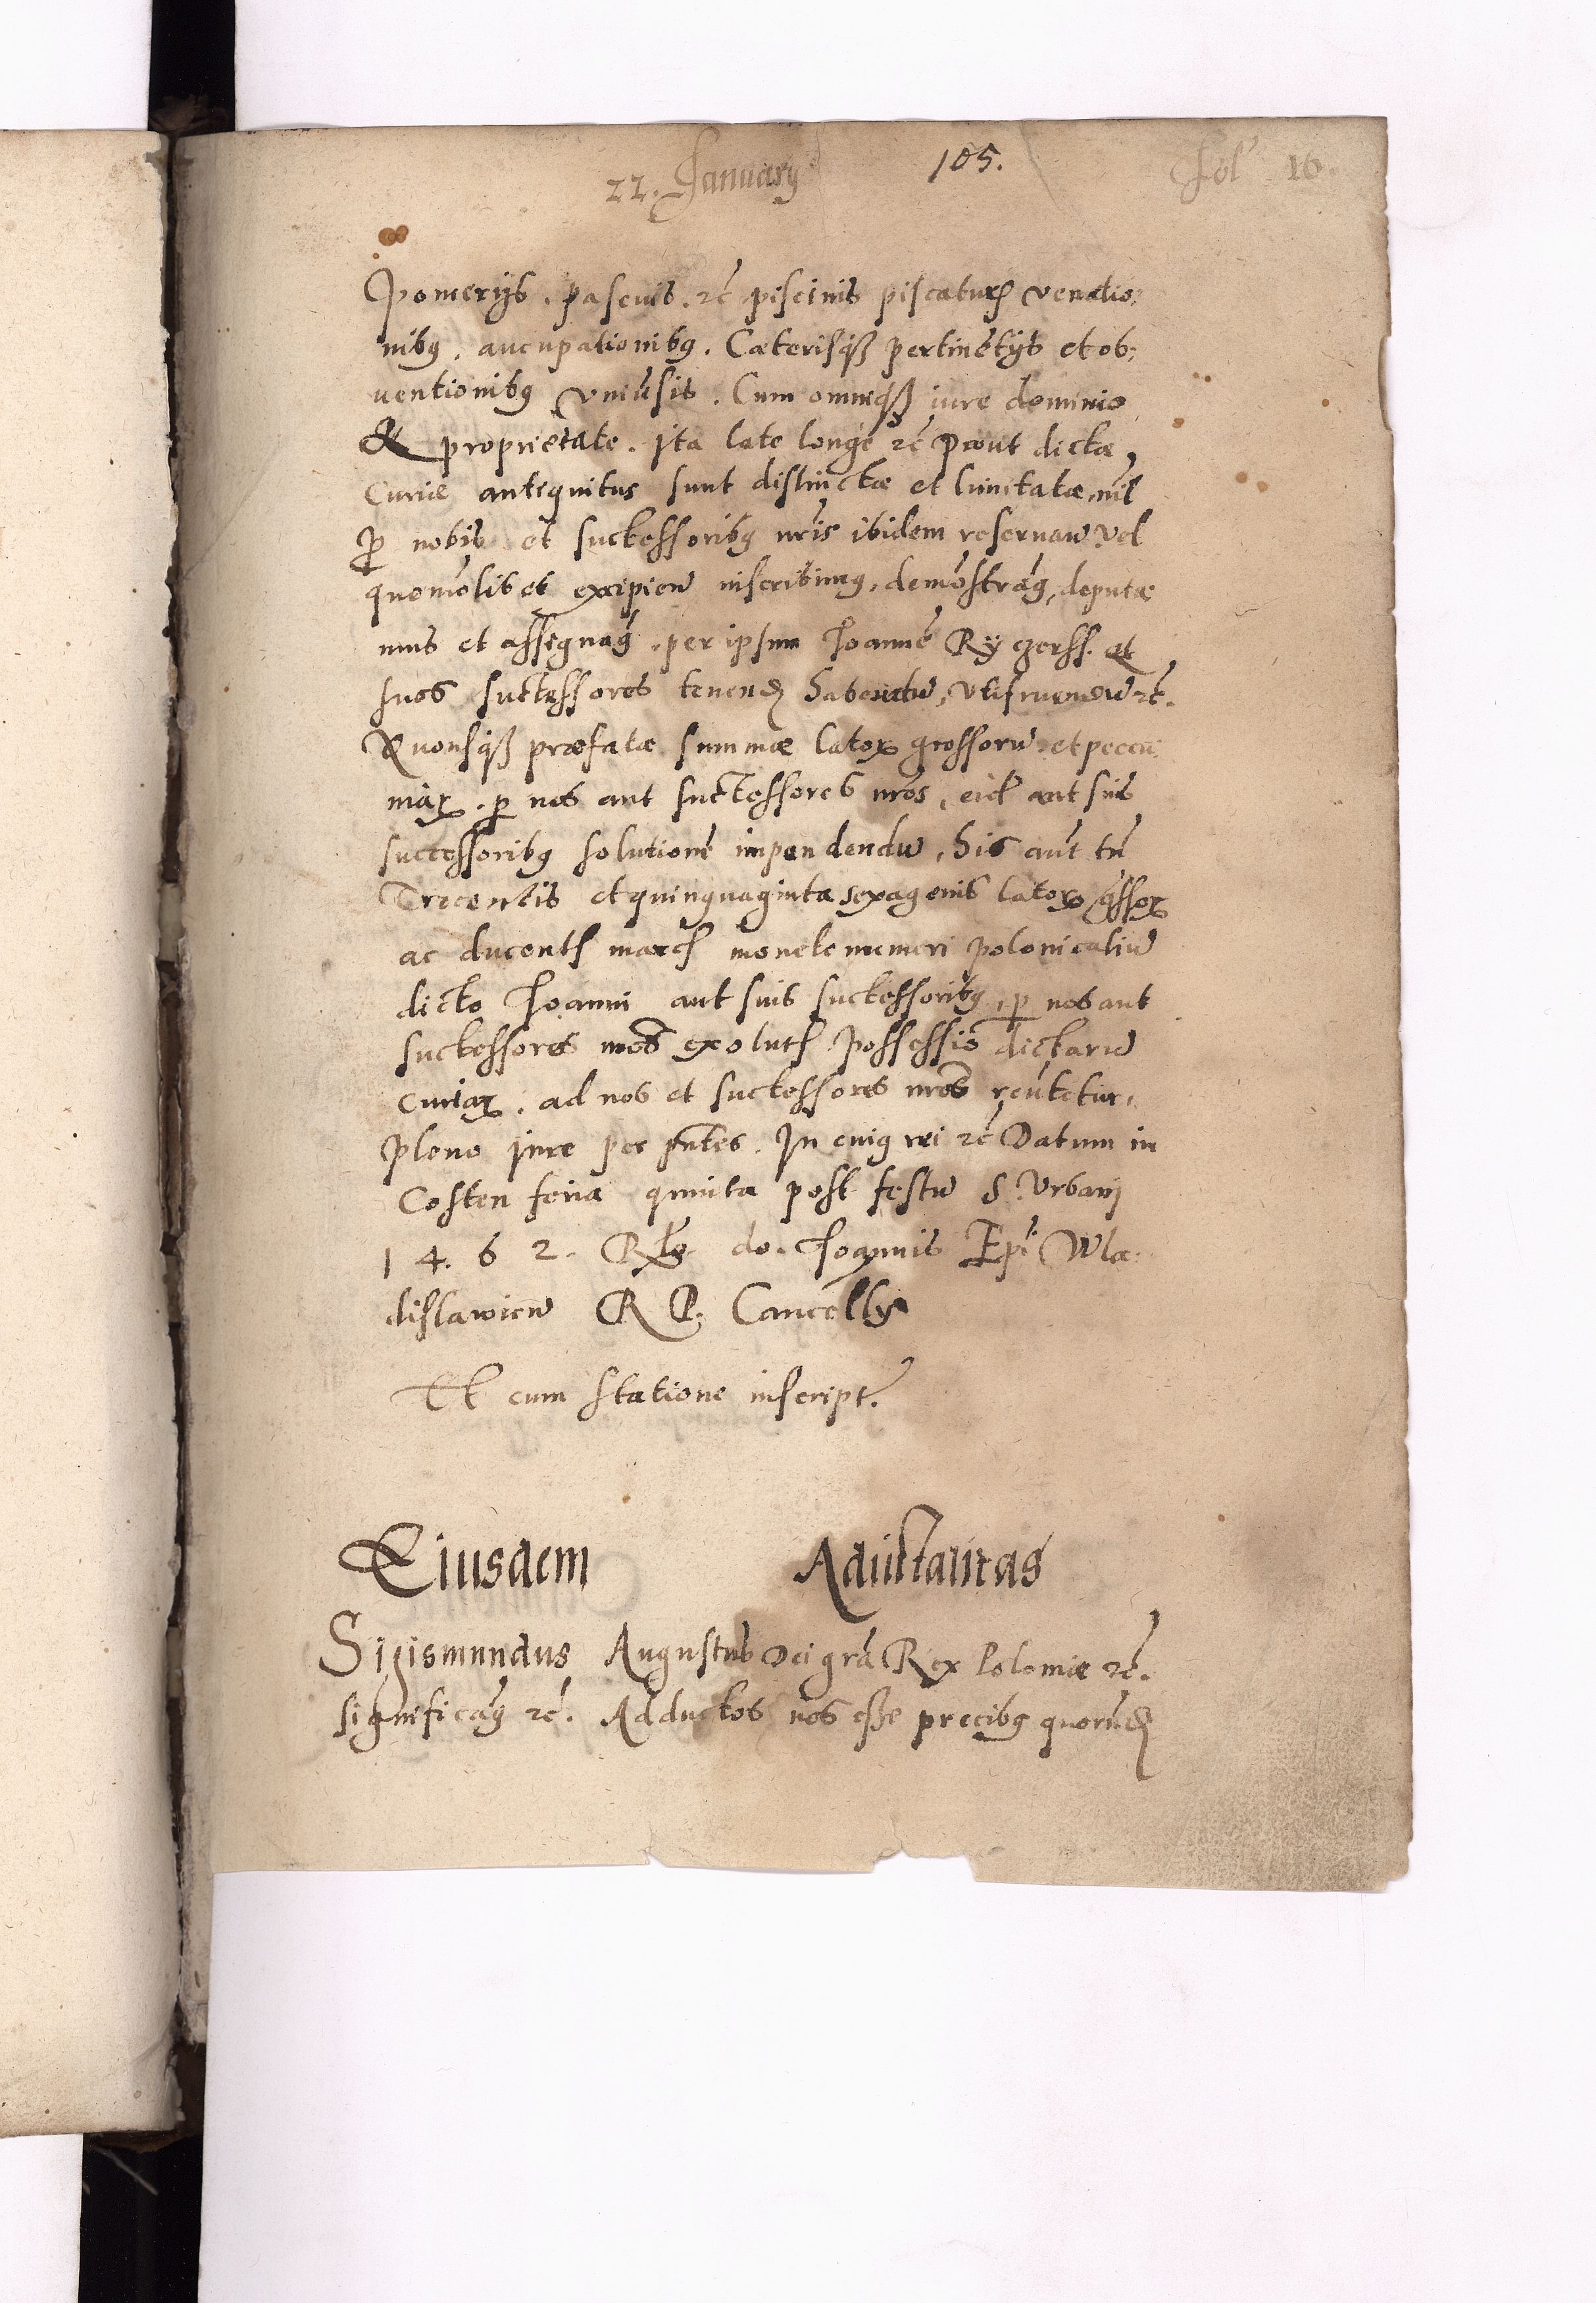 22. January 105. Fol 16.
Pomerijs . pascuis . rc̄ piscinis piscaturis venatio:
nibꝫ . aucupationibꝫ . Cæterisqꝫ pertinētijs et ob:
uentionibꝫ vniūsis . Cum omniqꝫ iure dominio
Et proprietate . Ita late longe rc̄ prout dictæ
Curiæ antiquitus sunt distinctæ et limitatæ, nil
ꝓ nobis et successoribꝫ nr̄is ibidem reseruan̄ vel
quomōlibet excipien̄ inscribimꝫ, demōstrāꝫ, deputa
mus et assignāꝫ . per ipsum Joannē Ryczerss. et
suos successores tenen̄ habendū, vtifruendū rc̄.
Quousqꝫ præfatæ summæ latoꝝ grossorū et pecu
niaꝝ . ꝑ nos aut successores nr̄os, eid̄ aut suis
successoribꝫ solutionē impendendū, his aūt tn̄
Trecentis et quinquaginta sexagenis latoꝝ gr̄ssoꝝ
ac ducentis marcis monete numeri polonicaliū
dicto Joanni aut suis successoribꝫ, ꝑ nos aut
successores nr̄os exolutis possessio dictarū
Curiaꝝ . ad nos et successores nr̄os reūtetur,
Pleno jure per pn̄tes . In cuiꝫ rei rc̄ Datum in
Costen feria quinta post festū S. Vrbani
1 4. 6 2. Rlo do. Joannis Epi Wla:
dislawien̄ R P. Cancellr̄
Et cum statione inscript.
Eiusdem Aduitalitas
Sigismundus Augustus Dei grā Rex Poloniæ rc̄.
significāꝫ rc̄. Adductos nos esse precibꝫ quorūd̄